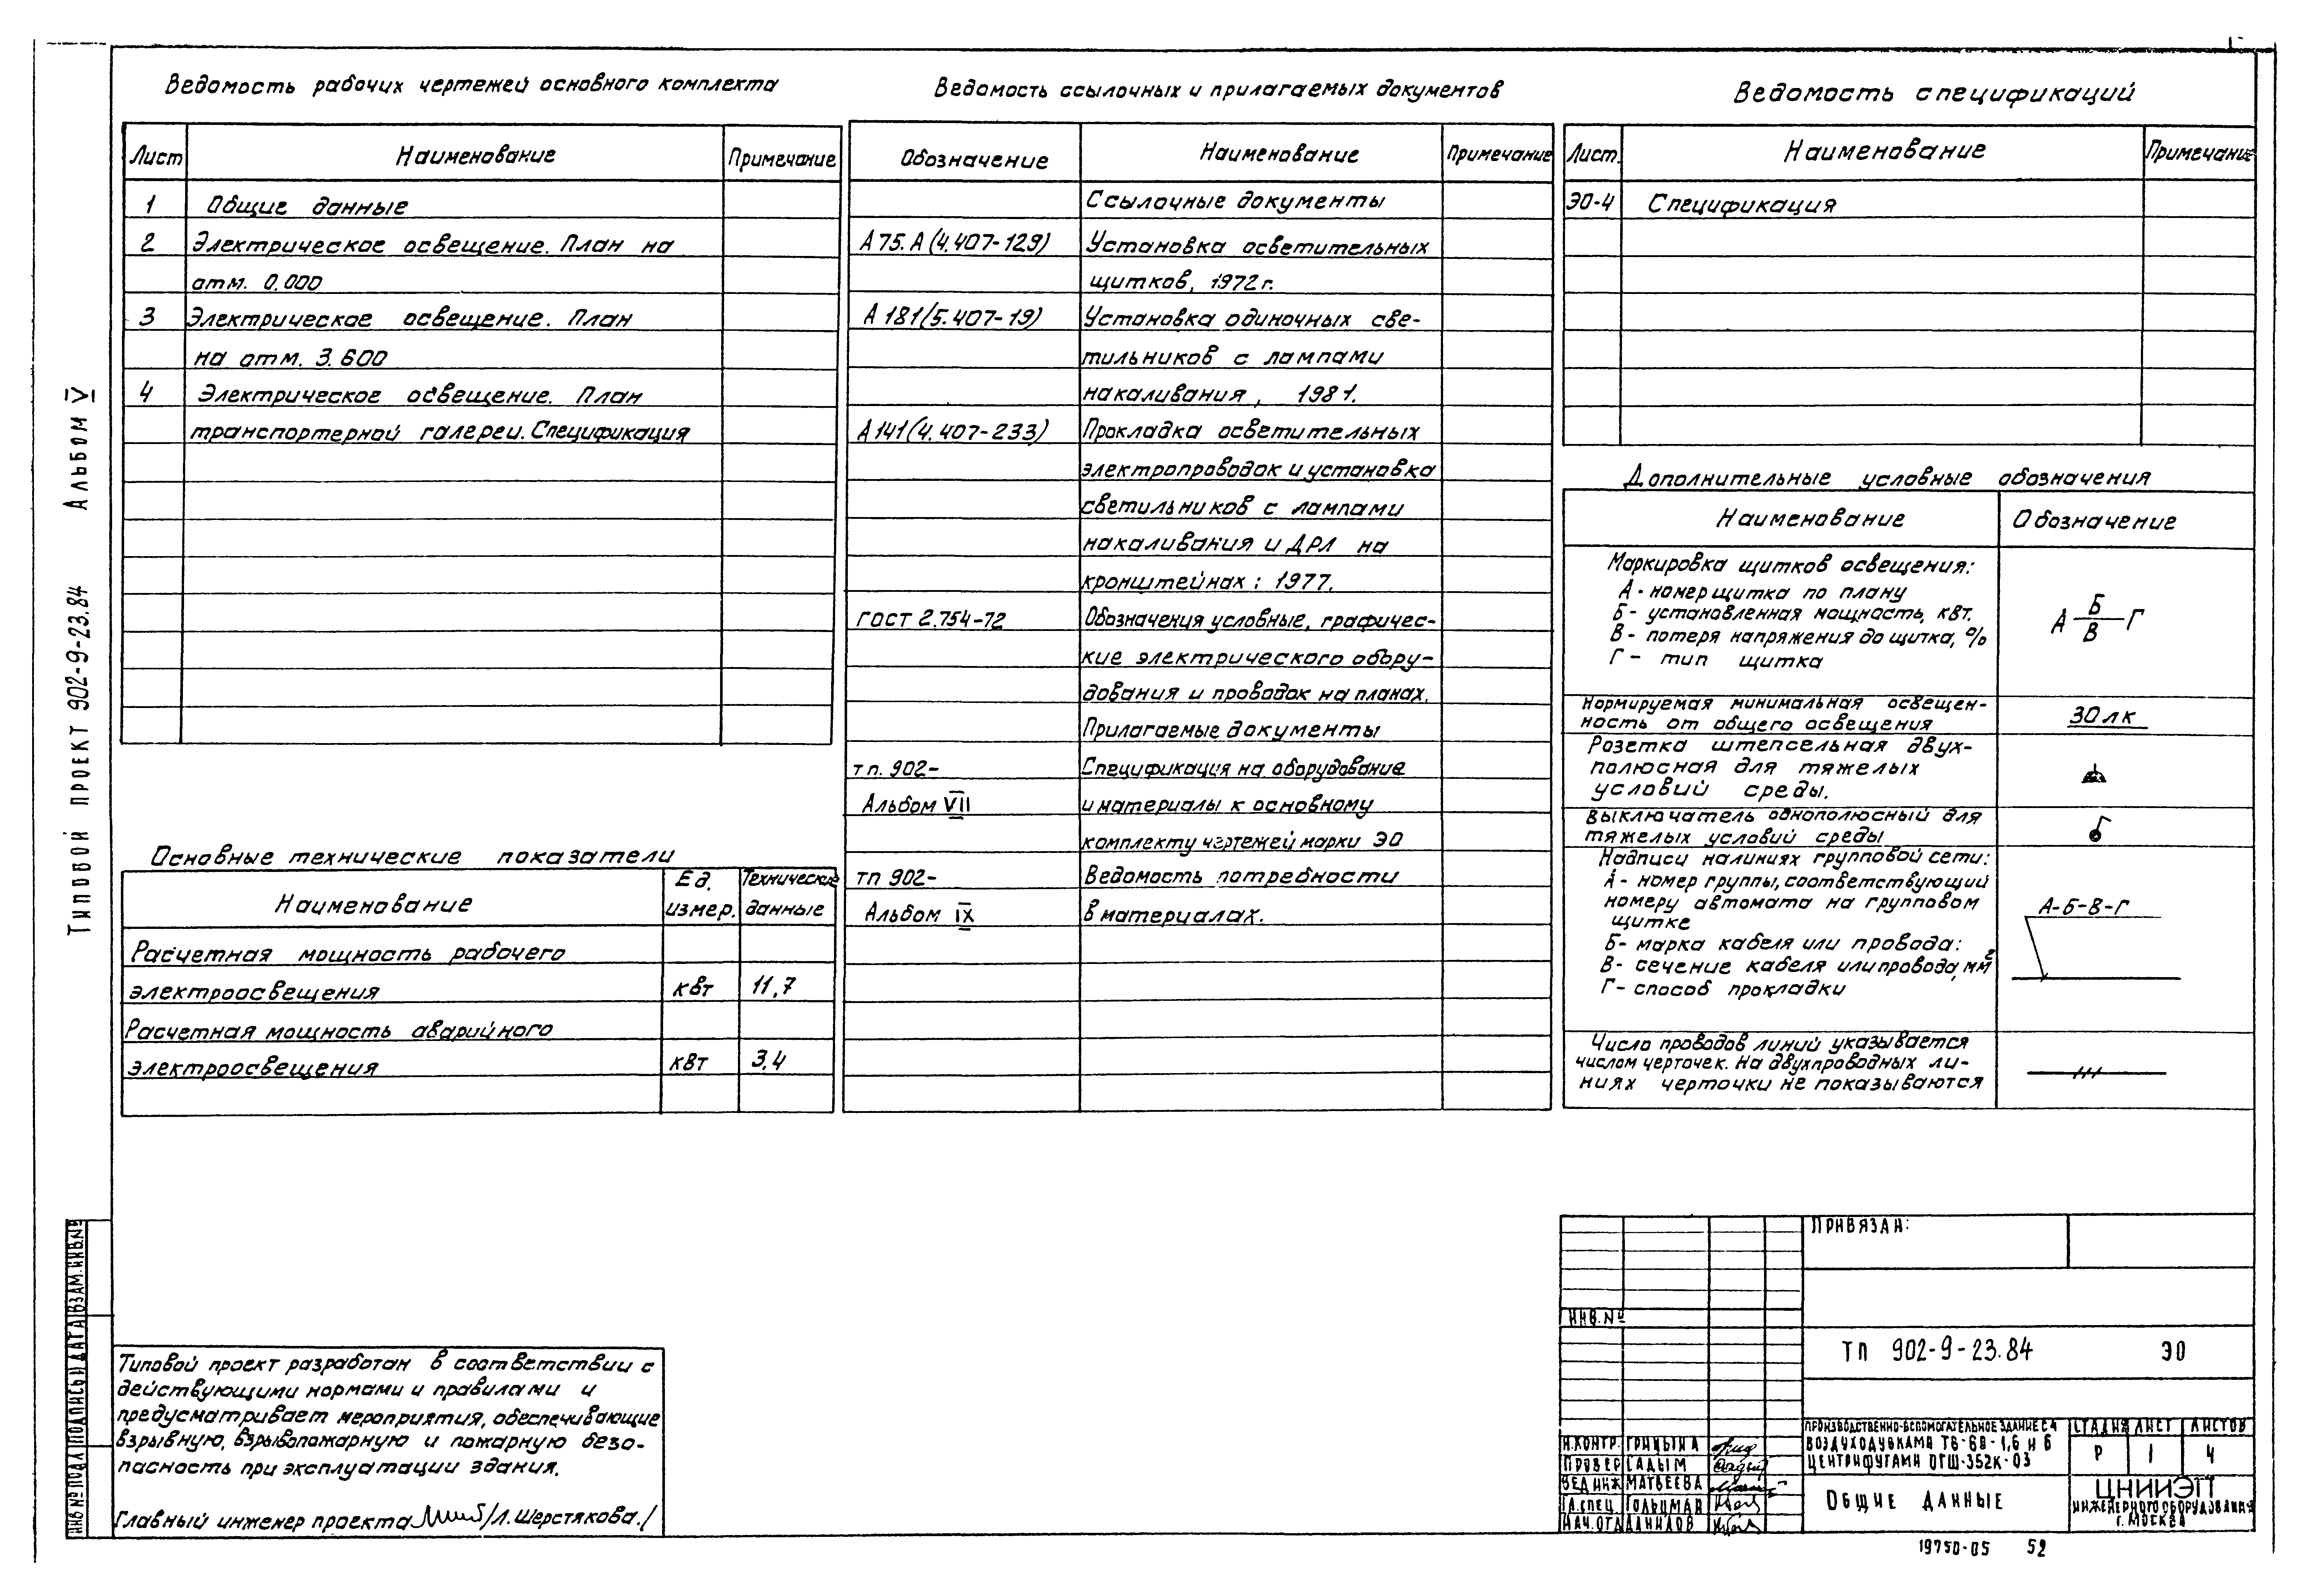 Ведомость рабочих чертежей основного комплекта
Лист Наименование Примечание
1 Общие данные
2 Электрическое освещение. План на
отм. 0.000
3 Электрическое освещение. План
на отм. 3.600
4 Электрическое освещение. План
транспортерной галереи. Спецификация
Основные технические показатели
Наименование Ед. измер. Технические данные
Расчетная мощность рабочего
электроосвещения квт 11,7
Расчетная мощность аварийного
электроосвещения квт 3,4
Ведомость ссылочных и прилагаемых документов
Обозначение Наименование Примечание
Ссылочные документы
А75.А (4.407-129) Установка осветительных
щитков, 1972г.
А 181(5.407-19) Установка одиночных све-
тильников с лампами
накаливания, 1981.
А141(4.407-233) Прокладка осветительных
электропроводок и установка
светильников с лампами
накаливания и ДРЛ на
кронштейнах: 1977.
ГОСТ 2.754-72 Обозначения условные, графичес-
кие электрического обору-
дования и проводок на планах.
Прилагаемые документы
тп. 902- Спецификация на оборудование
Альбом VII и материалы к основному
комплекту чертежей марки ЭО
тп 902- Ведомость потребности
Альбом IX в материалах.
Ведомость спецификаций
Лист. Наименование Примечание
ЭО-4 Спецификация
Дополнительные условные обозначения
Наименование Обозначение
Маркировка щитков освещения:
А - номер щитка по плану
Б - установленная мощность, квт.
В - потеря напряжения до щитка, %
Г - тип щитка
А Б/В Г
Нормируемая минимальная освещен-
ность от общего освещения
30 лк
Розетка штепсельная двух-
полюсная для тяжелых
условий среды.
Выключатель однополюсный для
тяжелых условий среды
Надписи на линиях групповой сети:
А - номер группы, соответствующий
номеру автомата на групповом
щитке
Б - марка кабеля или провода:
В - сечение кабеля или провода, мм²
Г - способ прокладки
А-Б-В-Г
Число проводов линий указывается
числом черточек. На двухпроводных ли-
ниях черточки не показываются
Типовой проект 902-9-23.84 Альбом V
ИНВ № ПОДЛ ПОДПИСЬ И ДАТА ВЗАМ. ИНВ. №
Типовой проект разработан в соответствии с
действующими нормами и правилами и
предусматривает мероприятия, обеспечивающие
взрывную, взрывопожарную и пожарную безо-
пасность при эксплуатации здания.
Главный инженер проекта /Л. Шерстякова./
ПРИВЯЗАН:
ИНВ. №
ТП 902-9-23.84 ЭО
Н.КОНТР. ГРИЦЫНА
ПРОВЕР САДЫМ
ВЕД ИНЖ МАТВЕЕВА
ГЛ.СПЕЦ. ГОЛЬЦМАН
НАЧ. ОТД ДАНИЛОВ
ПРОИЗВОДСТВЕННО-ВСПОМОГАТЕЛЬНОЕ ЗДАНИЕ С 4
ВОЗДУХОДУВКАМИ ТВ-68-1,6 И 6
ЦЕНТРИФУГАМИ ОГШ-352К-03
СТАДИЯ ЛИСТ ЛИСТОВ
Р 1 4
ОБЩИЕ ДАННЫЕ
ЦНИИЭП
ИНЖЕНЕРНОГО ОБОРУДОВАНИЯ
Г. МОСКВА
19750-05 52